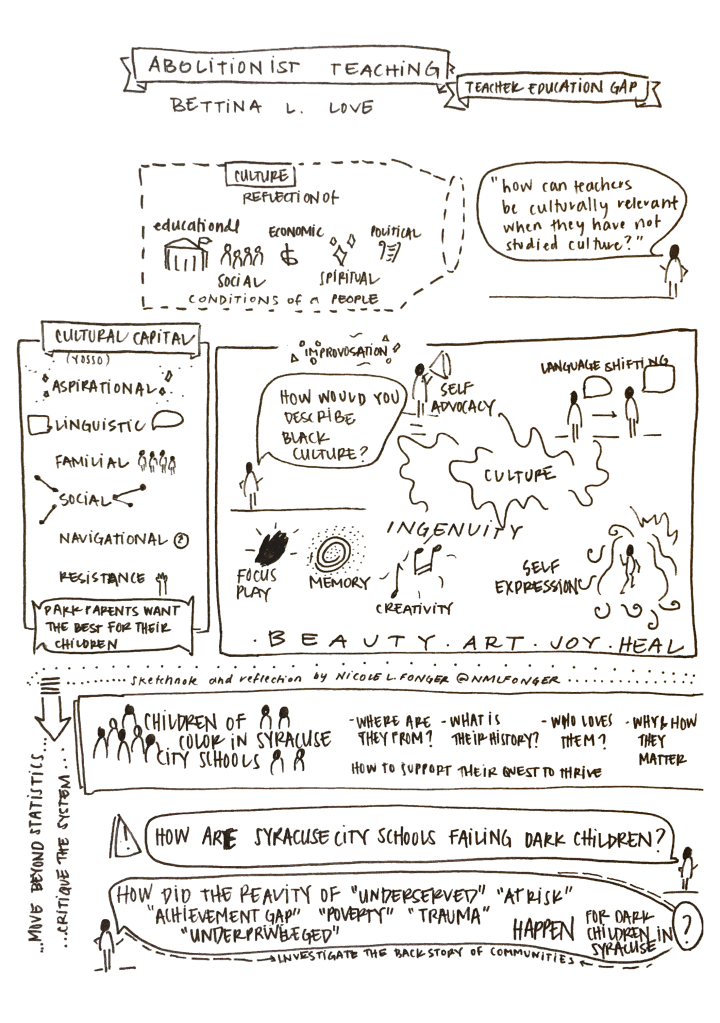 ABOLITIONIST TEACHING
TEACHER EDUCATION GAP
BETTINA L. LOVE
CULTURE
REFLECTION OF
educational
ECONOMIC
POLITICAL
SOCIAL
SPIRITUAL
CONDITIONS of A PEOPLE
"how can teachers
be culturally relevant
when they have not
studied culture?"
CULTURAL CAPITAL
(YOSSO)
ASPIRATIONAL
LINGUISTIC
FAMILIAL
SOCIAL
NAVIGATIONAL ?
RESISTANCE
DARK PARENTS WANT
THE BEST FOR THEIR
CHILDREN
IMPROVOSATION
HOW WOULD YOU
DESCRIBE
BLACK
CULTURE?
SELF
ADVOCACY
LANGUAGE SHIFTING
CULTURE
INGENUITY
FOCUS
PLAY
MEMORY
CREATIVITY
SELF
EXPRESSION
. BEAUTY . ART . JOY . HEAL
sketchnote and reflection by NICOLE L. FONGER @NMLFONGER
...MOVE BEYOND STATISTICS...
...CRITIQUE THE SYSTEM...
CHILDREN OF
COLOR IN SYRACUSE
CITY SCHOOLS
- WHERE ARE
THEY FROM?
- WHAT IS
THEIR HISTORY?
- WHO LOVES
THEM?
- WHY & HOW
THEY
MATTER
HOW TO SUPPORT THEIR QUEST TO THRIVE
!
HOW ARE SYRACUSE CITY SCHOOLS FAILING DARK CHILDREN?
HOW DID THE REAVITY OF "UNDERSERVED" "AT RISK"
"ACHIEVEMENT GAP" "POVERTY" "TRAUMA"
"UNDERPRIVILEGED"
HAPPEN
FOR DARK
CHILDREN IN
SYRACUSE
?
INVESTIGATE THE BACKSTORY OF COMMUNITIES